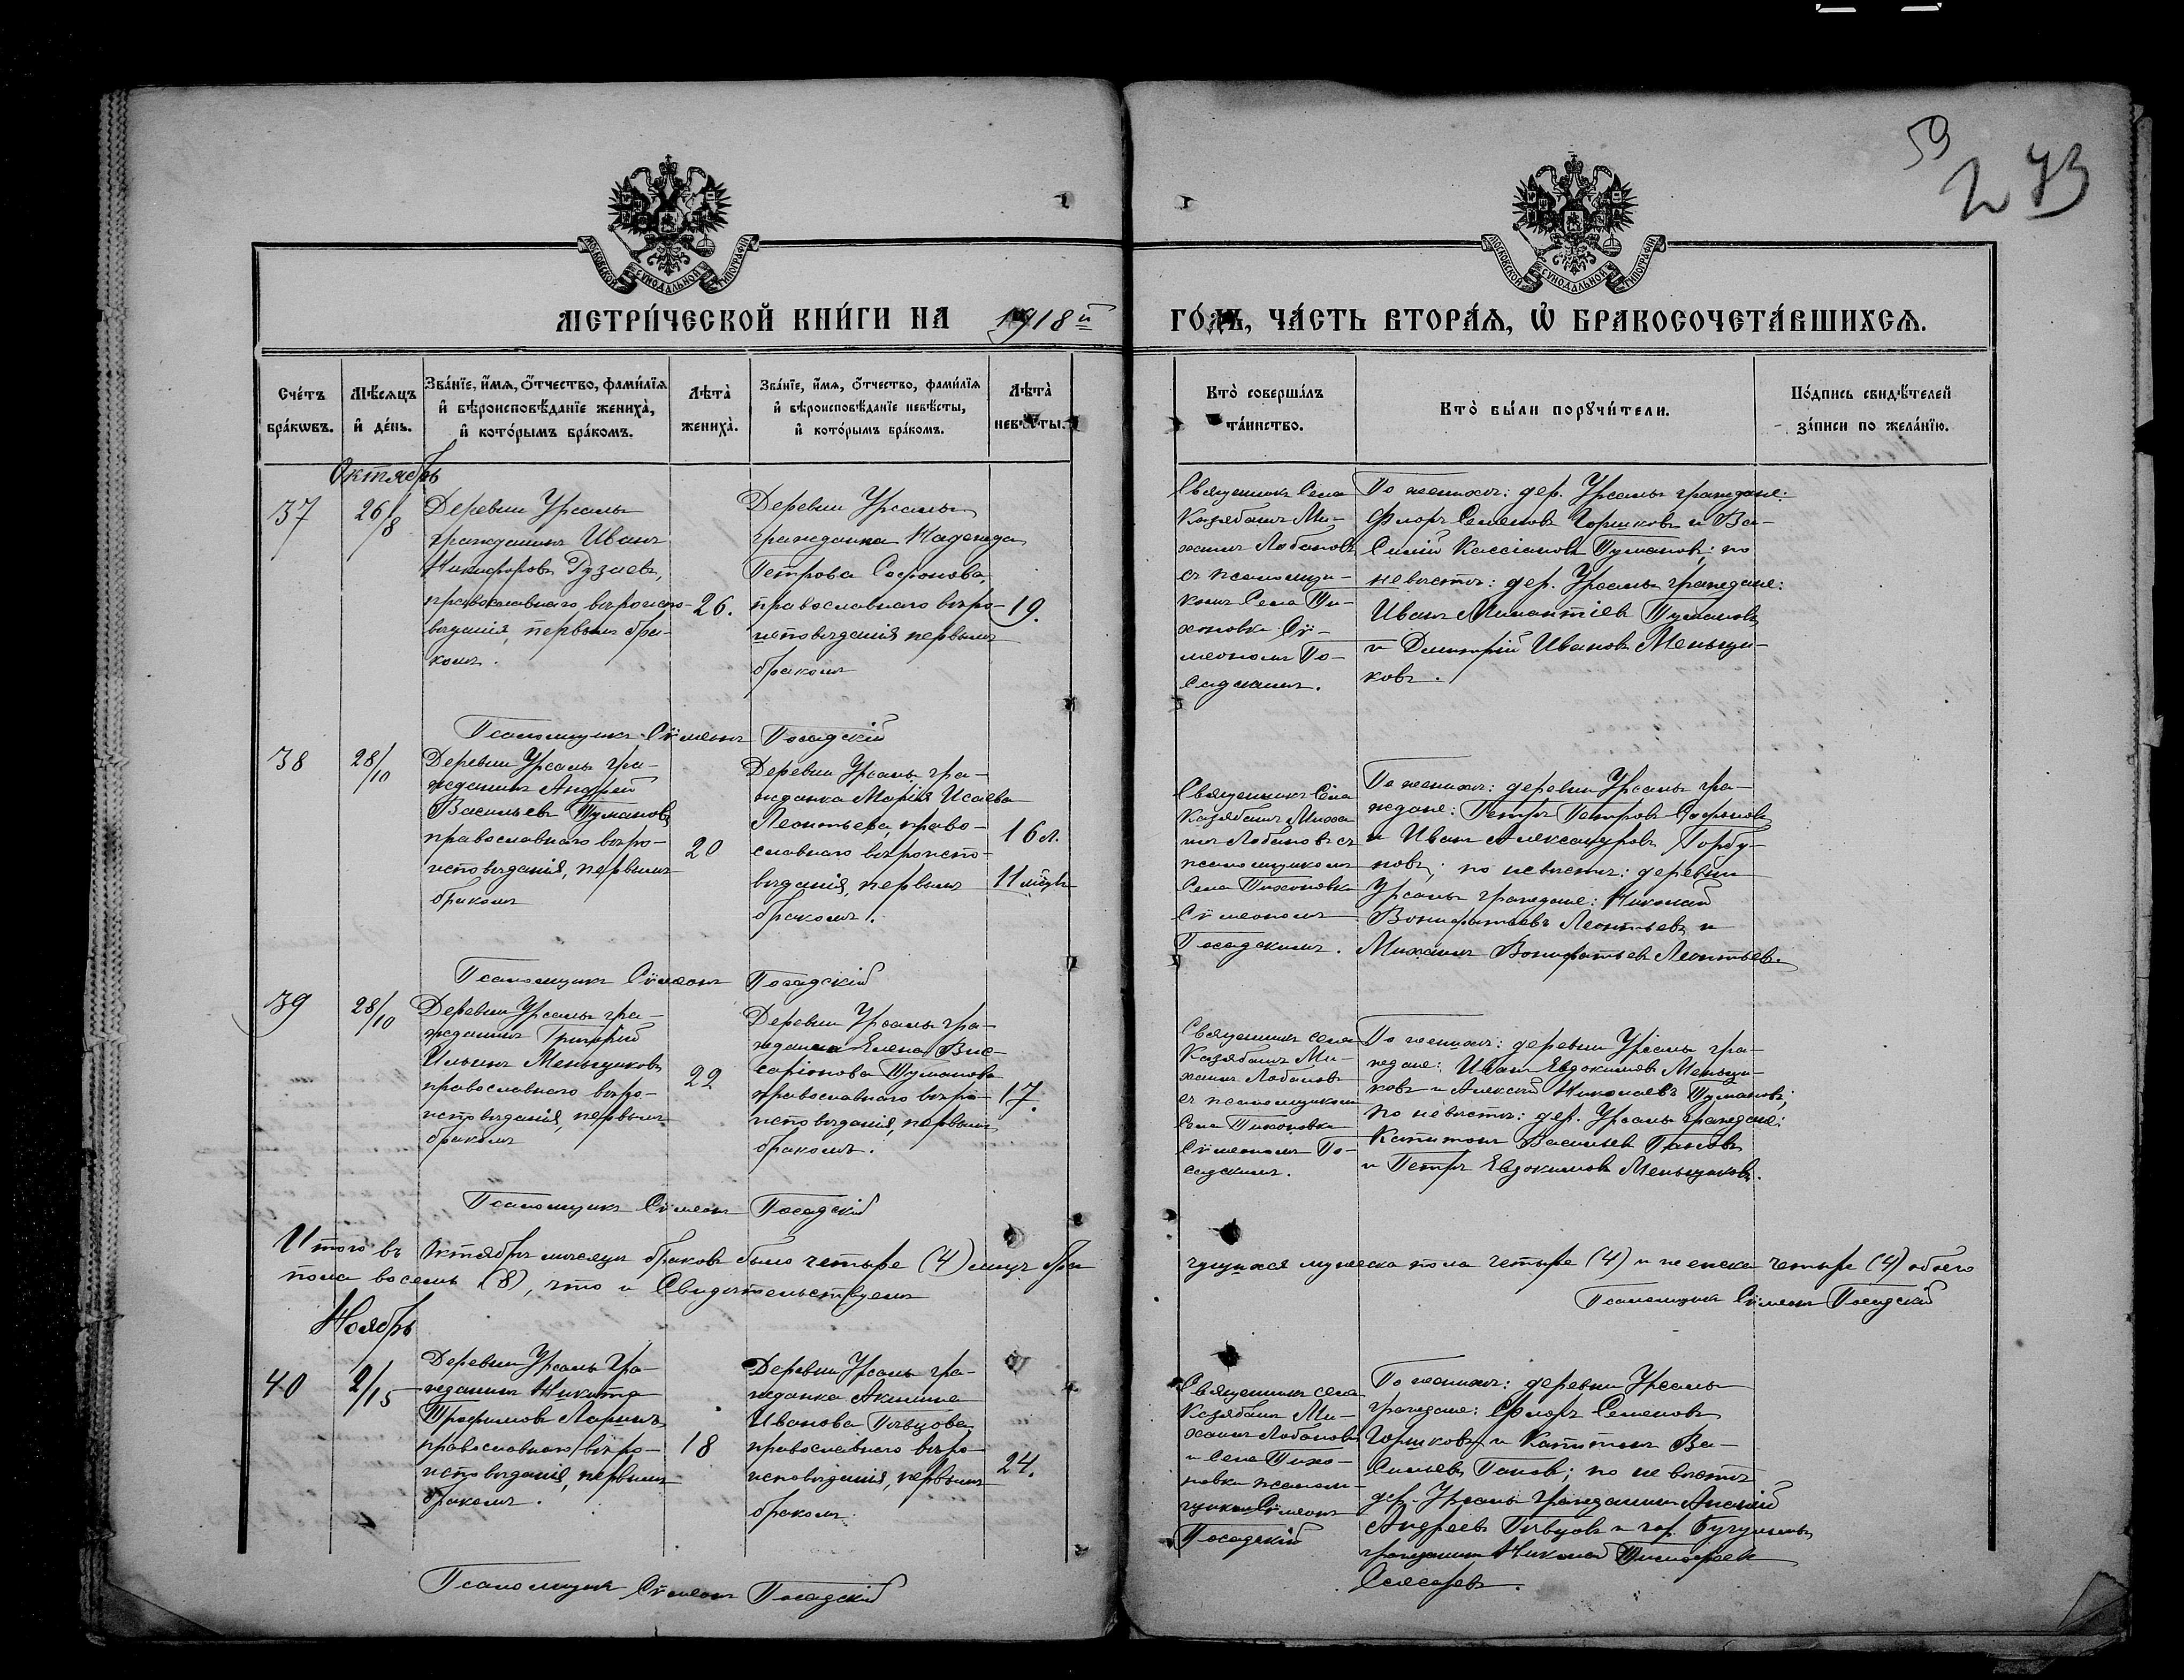 59
273
МОСКОВСКОЙ СѴНОДАЛЬНОЙ ТИПОГРАФІИ
МОСКОВСКОЙ СѴНОДАЛЬНОЙ ТИПОГРАФІИ
МЕТРИ́ЧЕСКОЙ КНИ́ГИ НА 1918 й ГО́ДЪ, ЧА́СТЬ ВТОРА́Я, Ѡ҆ БРАКОСОЧЕТА́ВШИХСЯ.
Сче́тъ
бра́кѡвъ.
Мѣ́сяцъ
и҆ де́нь.
Зва́нїе, и҆́мя, ѻ҆́тчество, фами́лїя
и҆ вѣроисповѣ́данїе жениха̀,
и҆ кото́рымъ бра́комъ.
Лѣта̀
жениха̀.
Зва́нїе, и҆́мя, ѻ҆́тчество, фами́лїя
и҆ вѣроисповѣ́данїе невѣ́сты,
и҆ кото́рымъ бра́комъ.
Лѣта̀
невѣ́сты.
Кто̀ соверша́лъ
та́инство.
Кто̀ бы́ли порꙋчи́тели.
По́дпись свидѣ́телей
за́писи по жела́нїю.
Октябрь
37
26/8
Деревни Урсалы
гражданинъ Иванъ
Никифоровъ Гузаевъ,
православнаго вѣроиспо-
вѣданія, первымъ бра-
комъ.
26.
Деревни Урсалы
гражданка Надежда
Петрова Сафонова,
православнаго вѣро-
исповѣданія первымъ
бракомъ
19.
Священникъ Села
Казябашъ Ми-
хаилъ Лобановъ
съ псаломщи-
комъ Села Ти-
хоновки Сѵ-
меономъ По-
садскимъ.
По женихѣ: дер. Урсалы граждане:
Флоръ Семеновъ Горшковъ и Ва-
силій Кассіановъ Тумановъ; по
невѣстѣ: дер. Урсалы граждане:
Иванъ Тумановъ
и Димитрій Иванов Меньщи-
ковъ.
Псаломщикъ Сѵмеонъ Посадскій
38
28/10
Деревни Урсалы гра-
жданинъ Андрей
Васильевъ Тумановъ
православнаго вѣро-
исповѣданія, первымъ
бракомъ
20
Деревни Урсалы гра-
жданка Марія Исаева
Леонтьева, право-
славнаго вѣроиспо-
вѣданія, первымъ
бракомъ.
16 л.
11 мѣс.
Священникъ Села
Казябашъ Миха
илъ Лобановъ съ
псаломщикомъ
Села Тихоновки
Сѵмеономъ
Посадскимъ.
По женихѣ: деревни Урсалы гра-
ждане: Петръ Петровъ Сафоновъ
и Иванъ Александровъ Горбу-
новъ; по невѣстѣ: деревни
Урсалы граждане: Николай
Вонифатьевъ Леонтьевъ и
Михаилъ Вонифатьевъ Леонтьевъ.
Псаломщикъ Сѵмеонъ Посадскій
39
28/10
Деревни Урсалы гра-
жданинъ Григорій
Ильинъ Меньщиковъ
православнаго вѣро-
исповѣданія, первымъ
бракомъ
22
Деревни Урсалы гра-
жданка Елена Вис-
саріонова Туманова
православнаго вѣро-
исповѣданія, первымъ
бракомъ.
17.
Священникъ села
Казябашъ Ми-
хаилъ Лобановъ
съ псаломщикомъ
Села Тихоновки
Сѵмеономъ По-
садскимъ.
По женихѣ: деревни Урсалы гра-
ждане: Иванъ Евдокимовъ Меньщи-
ковъ и Алексѣй Николаевъ Тумановъ;
по невѣстѣ: дер. Урсалы граждане:
Капитонъ Васильевъ Пановъ
и Петръ Евдокимовъ Меньщиковъ.
Псаломщикъ Сѵмеонъ Посадскій
Итого въ Октябрѣ мѣсяцѣ браковъ было четыре (4) лицъ бра
чущихся мужеска пола четыре (4) и женска четыре (4) обоего
пола восемь (8), что и Свидѣтельствуемъ
Псаломщикъ Сѵмеонъ Посадскій
Ноябрь
40
2/15
Деревни Урсалы гра-
жданинъ Никита
Трофимовъ Ларинъ
православнаго вѣро-
исповѣданія, первымъ
бракомъ.
18
Деревни Урсалы гра-
жданка Акилина
Иванова Пѣвцова
православнаго вѣро-
исповѣданія, первымъ
бракомъ.
24.
Священникъ села
Казябашъ Ми-
хаилъ Лобановъ
и Села Тихо-
новки псалом-
щикъ Сѵмеонъ
Посадскій
По женихѣ: деревни Урсалы
граждане: Флоръ Семеновъ
Горшковъ и Капитонъ Ва-
сильевъ Пановъ; по невѣстѣ
дер. Урсалы гражданинъ Алексѣй
Андреевъ Пѣвцовъ и гор. Бугульмы
гражданинъ Николай Тимофеевъ
Слесаревъ.
Псаломщикъ Сѵмеонъ Посадскій